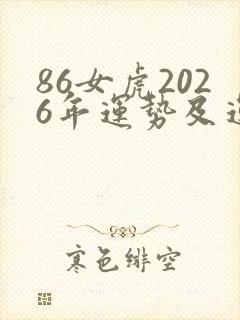 86女虎202
6年運势及运
寒色绯空